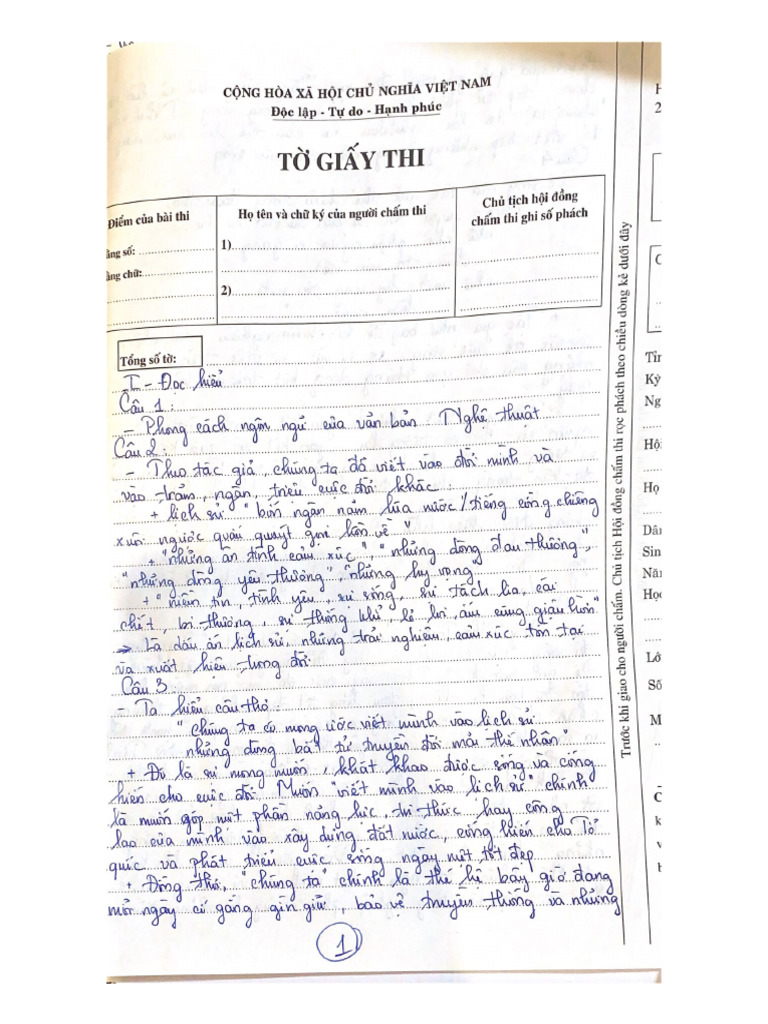 CỘNG HÒA XÃ HỘI CHỦ NGHĨA VIỆT NAM
Độc lập - Tự do - Hạnh phúc
TỜ GIẤY THI
Điểm của bài thi
ằng số:
ằng chữ:
Họ tên và chữ ký của người chấm thi
1)
2)
Chủ tịch hội đồng
chấm thi ghi số phách
Tổng số tờ:
I - Đọc hiểu
Câu 1:
- Phong cách ngôn ngữ của văn bản: Nghệ thuật
Câu 2:
- Theo tác giả, chúng ta đã viết vào đời mình và
vào trăm, ngàn, triệu cuộc đời khác:
+ lịch sử "bốn ngàn năm lúa nước / tiếng cồng chiêng
xuôi ngược quấn quýt gọi hồn về"
+ "những ân tình cảm xúc", "những dòng đau thương",
"những dòng yêu thương", "những hy vọng"
+ "niềm tin, tình yêu, sự sống, sự tách lìa, cái
chết, lời thương, sự thống khổ, lẻ loi, ấm cúng, giận hờn"
-> Là dấu ấn lịch sử, những trải nghiệm, cảm xúc tồn tại
và xuất hiện trong đời.
Câu 3:
- Ta hiểu câu thơ:
"Chúng ta có mong ước viết mình vào lịch sử
những dòng bất tử truyền đời mãi thế nhân"
+ Đó là sự mong muốn, khát khao được sống và cống
hiến cho cuộc đời. Muốn "viết mình vào lịch sử" chính
là muốn góp một phần năng lực, tri thức hay công
lao của mình vào xây dựng đất nước, cống hiến cho Tổ
quốc và phát triển cuộc sống ngày một tốt đẹp.
+ Đồng thời, "chúng ta" chính là thế hệ bây giờ đang
mỗi ngày cố gắng gìn giữ, bảo vệ truyền thống và những
1
Trước khi giao cho người chấm. Chủ tịch Hội đồng chấm thi rọc phách theo chiều dòng kẻ dưới đây
H
2
C
Tỉn
Kỳ
Ng
Hộ
Họ
Dân
Sin
Năn
Học
Lớ
Số
M